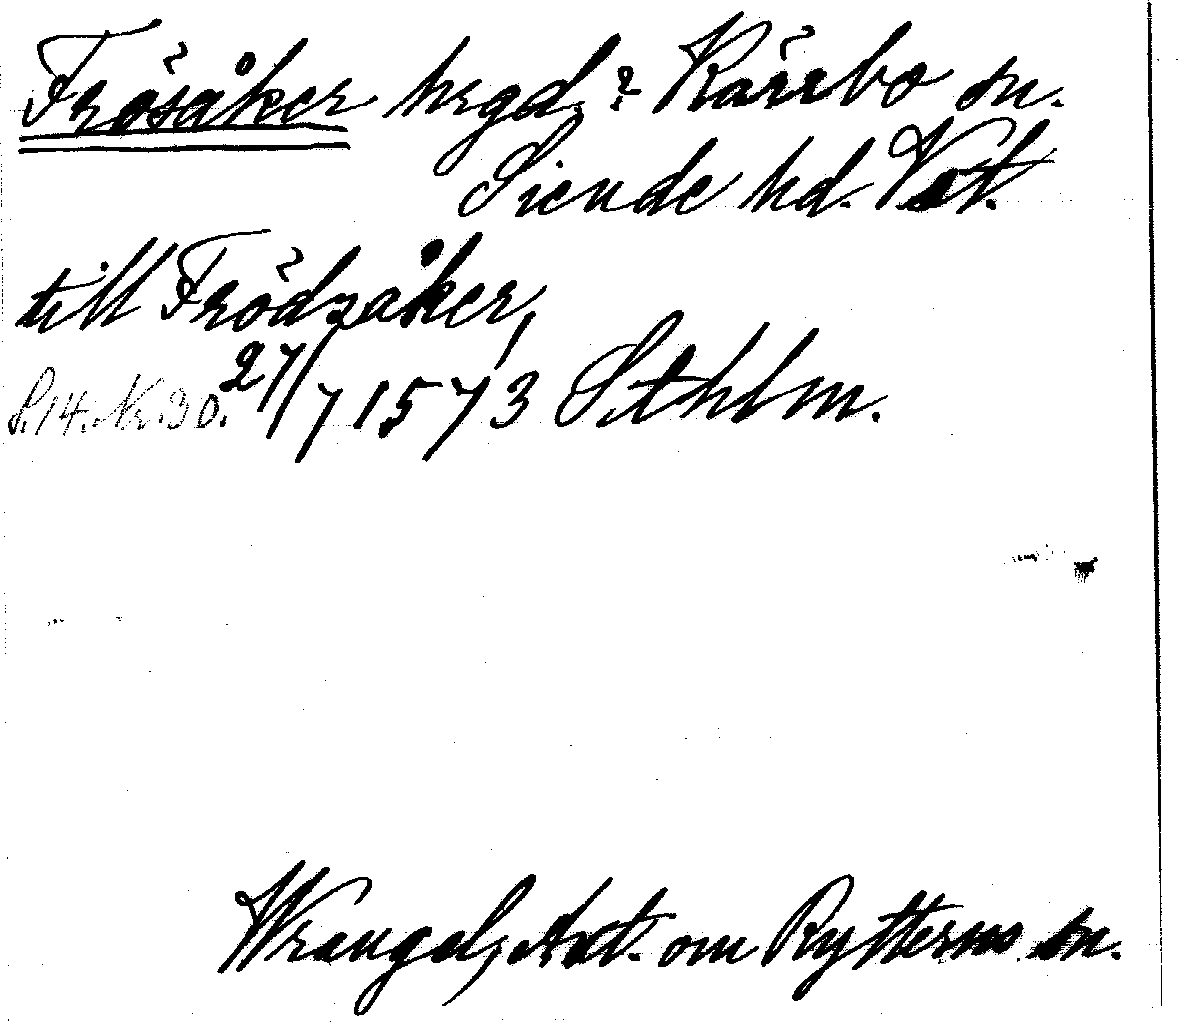 Frösåker hrgd.? Kärrbo sn.
Siende hd. Vst.
till Frödzåker,
S.14. Nr.30. 27/7 1573 Sthlm.
Wrangel, Ant. om Rytterns sn.